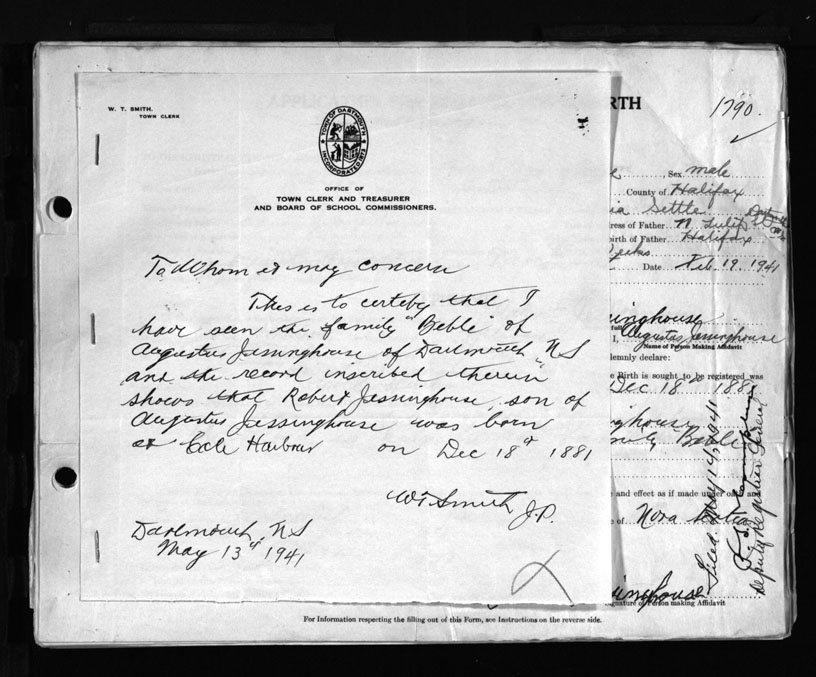 W. T. SMITH.
TOWN CLERK
TOWN OF DARTMOUTH
INCORPORATED 1873
OFFICE OF
TOWN CLERK AND TREASURER
AND BOARD OF SCHOOL COMMISSIONERS.
To Whom it may concern
This is to certify that I
have seen the family "Bible" of
Augustus Jessinghouse of Dartmouth N S
and the record inscribed therein
shows that Robert Jessinghouse, son of
Augustus Jessinghouse was born
at Cole Harbour on Dec 18th 1881
W T Smith J.P.
Dartmouth, N S
May 13th 1941
RTH
1790.
Sex male
County of Halifax
Settle
ress of Father N Tulip St
irth of Father Halifax
Date Feb. 19. 1941
singhouse
I, Augustus Jessinghouse
Name of Person Making Affidavit
lemnly declare:
e Birth is sought to be registered was
Dec 18th 1881
nghouse
Bible
e and effect as if made under oath and
e of Nova Scotia
singhouse
ignature of Person making Affidavit
Filed. May 14, 1941
Deputy Registrar General
For Information respecting the filling out of this Form, see Instructions on the reverse side.